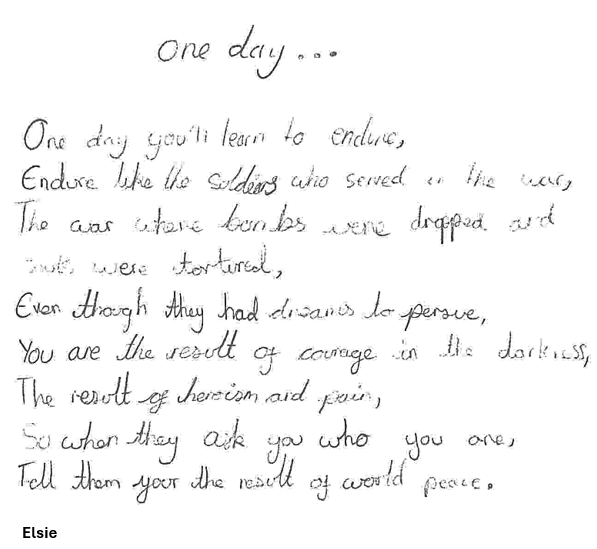 One day...
One day you'll learn to endure,
Endure like the soldiers who served in the war,
The war where bombs were dropped and
souls were tortured,
Even though they had dreams to persue,
You are the result of courage in the darkness,
The result of heroism and pain,
So when they ask you who you are,
Tell them your the result of world peace.
Elsie